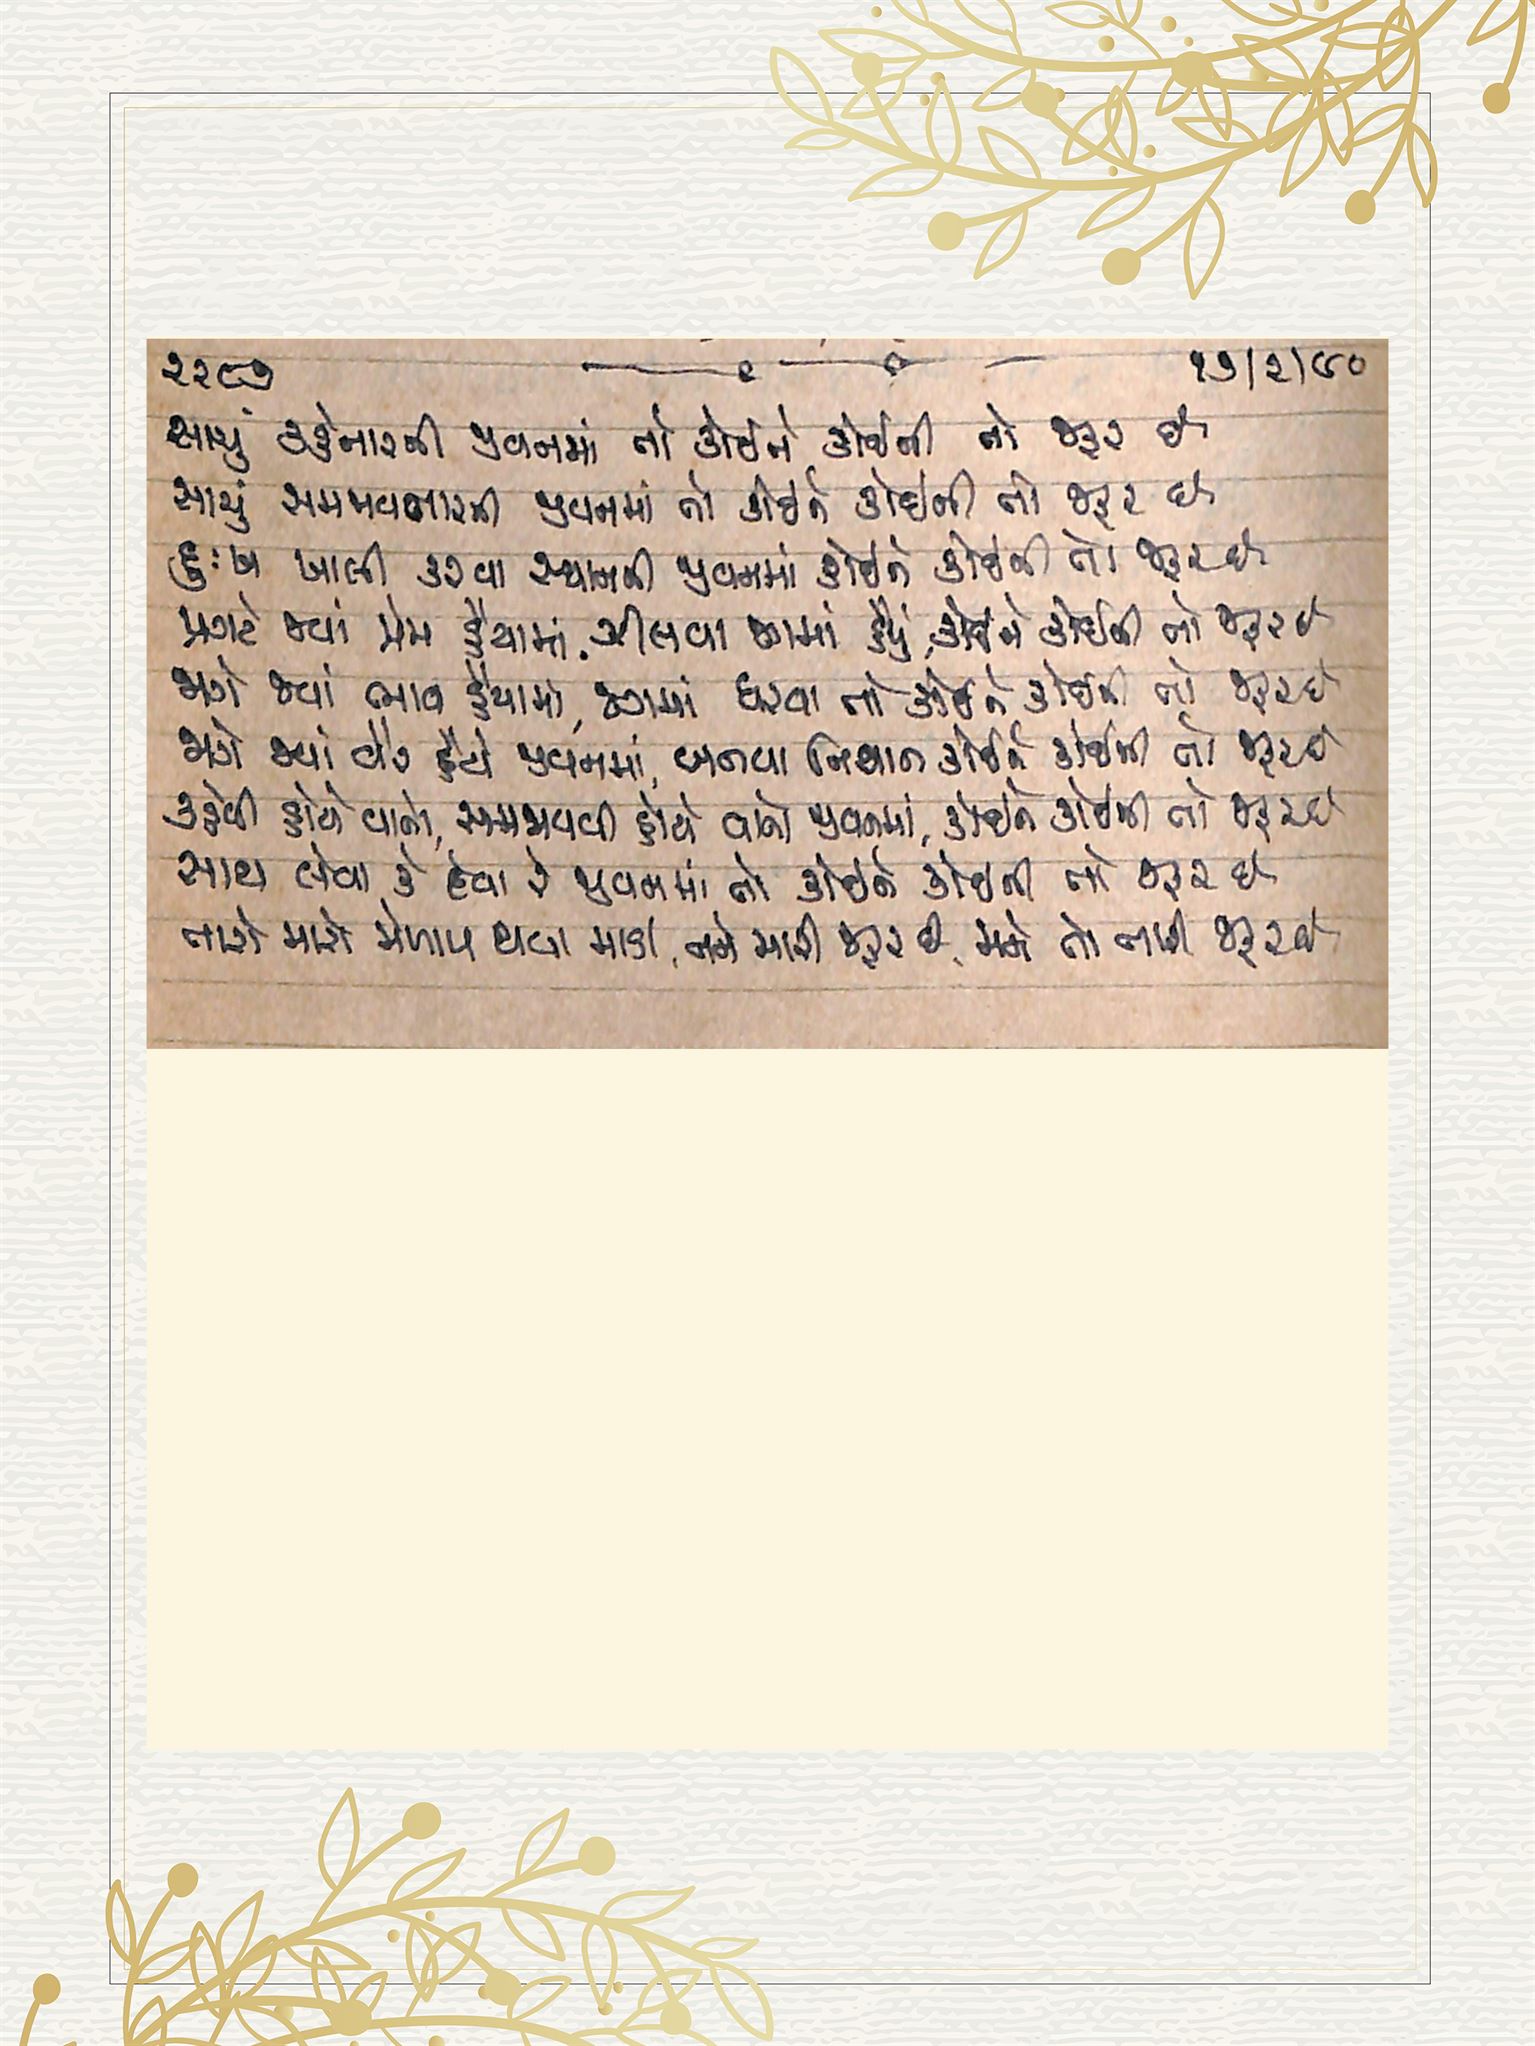 ૨૨૯૭ ૧૭/૨/૯૦
સાચું કહેનારની જીવનમાં તો કોઈને કોઈની તો જરૂર છે
સાચું સમજાવનારની જીવનમાં તો કોઈને કોઈની તો જરૂર છે
દુઃખ ખાલી કરવા સ્થાનની જીવનમાં કોઈને કોઈની તો જરૂર છે
પ્રગટે જ્યાં પ્રેમ હૈયામાં, ઝીલવા જગમાં હૈયું, કોઈને કોઈની તો જરૂર છે
જાગે જ્યાં ભાવ હૈયામાં, જગમાં ધરવા તો કોઈને કોઈની તો જરૂર છે
જાગે જ્યાં વૈર હૈયે જીવનમાં, બનવા નિશાન કોઈને કોઈની તો જરૂર છે
કહેવી હોયે વાતો, સમજાવવી હોયે વાતો જીવનમાં, કોઈને કોઈની તો જરૂર છે
સાથ લેવા કે દેવા રે જીવનમાં તો કોઈને કોઈની તો જરૂર છે
તારો મારો મેળાપ થવા માડી, તને મારી જરૂર છે, મને તો તારી જરૂર છે